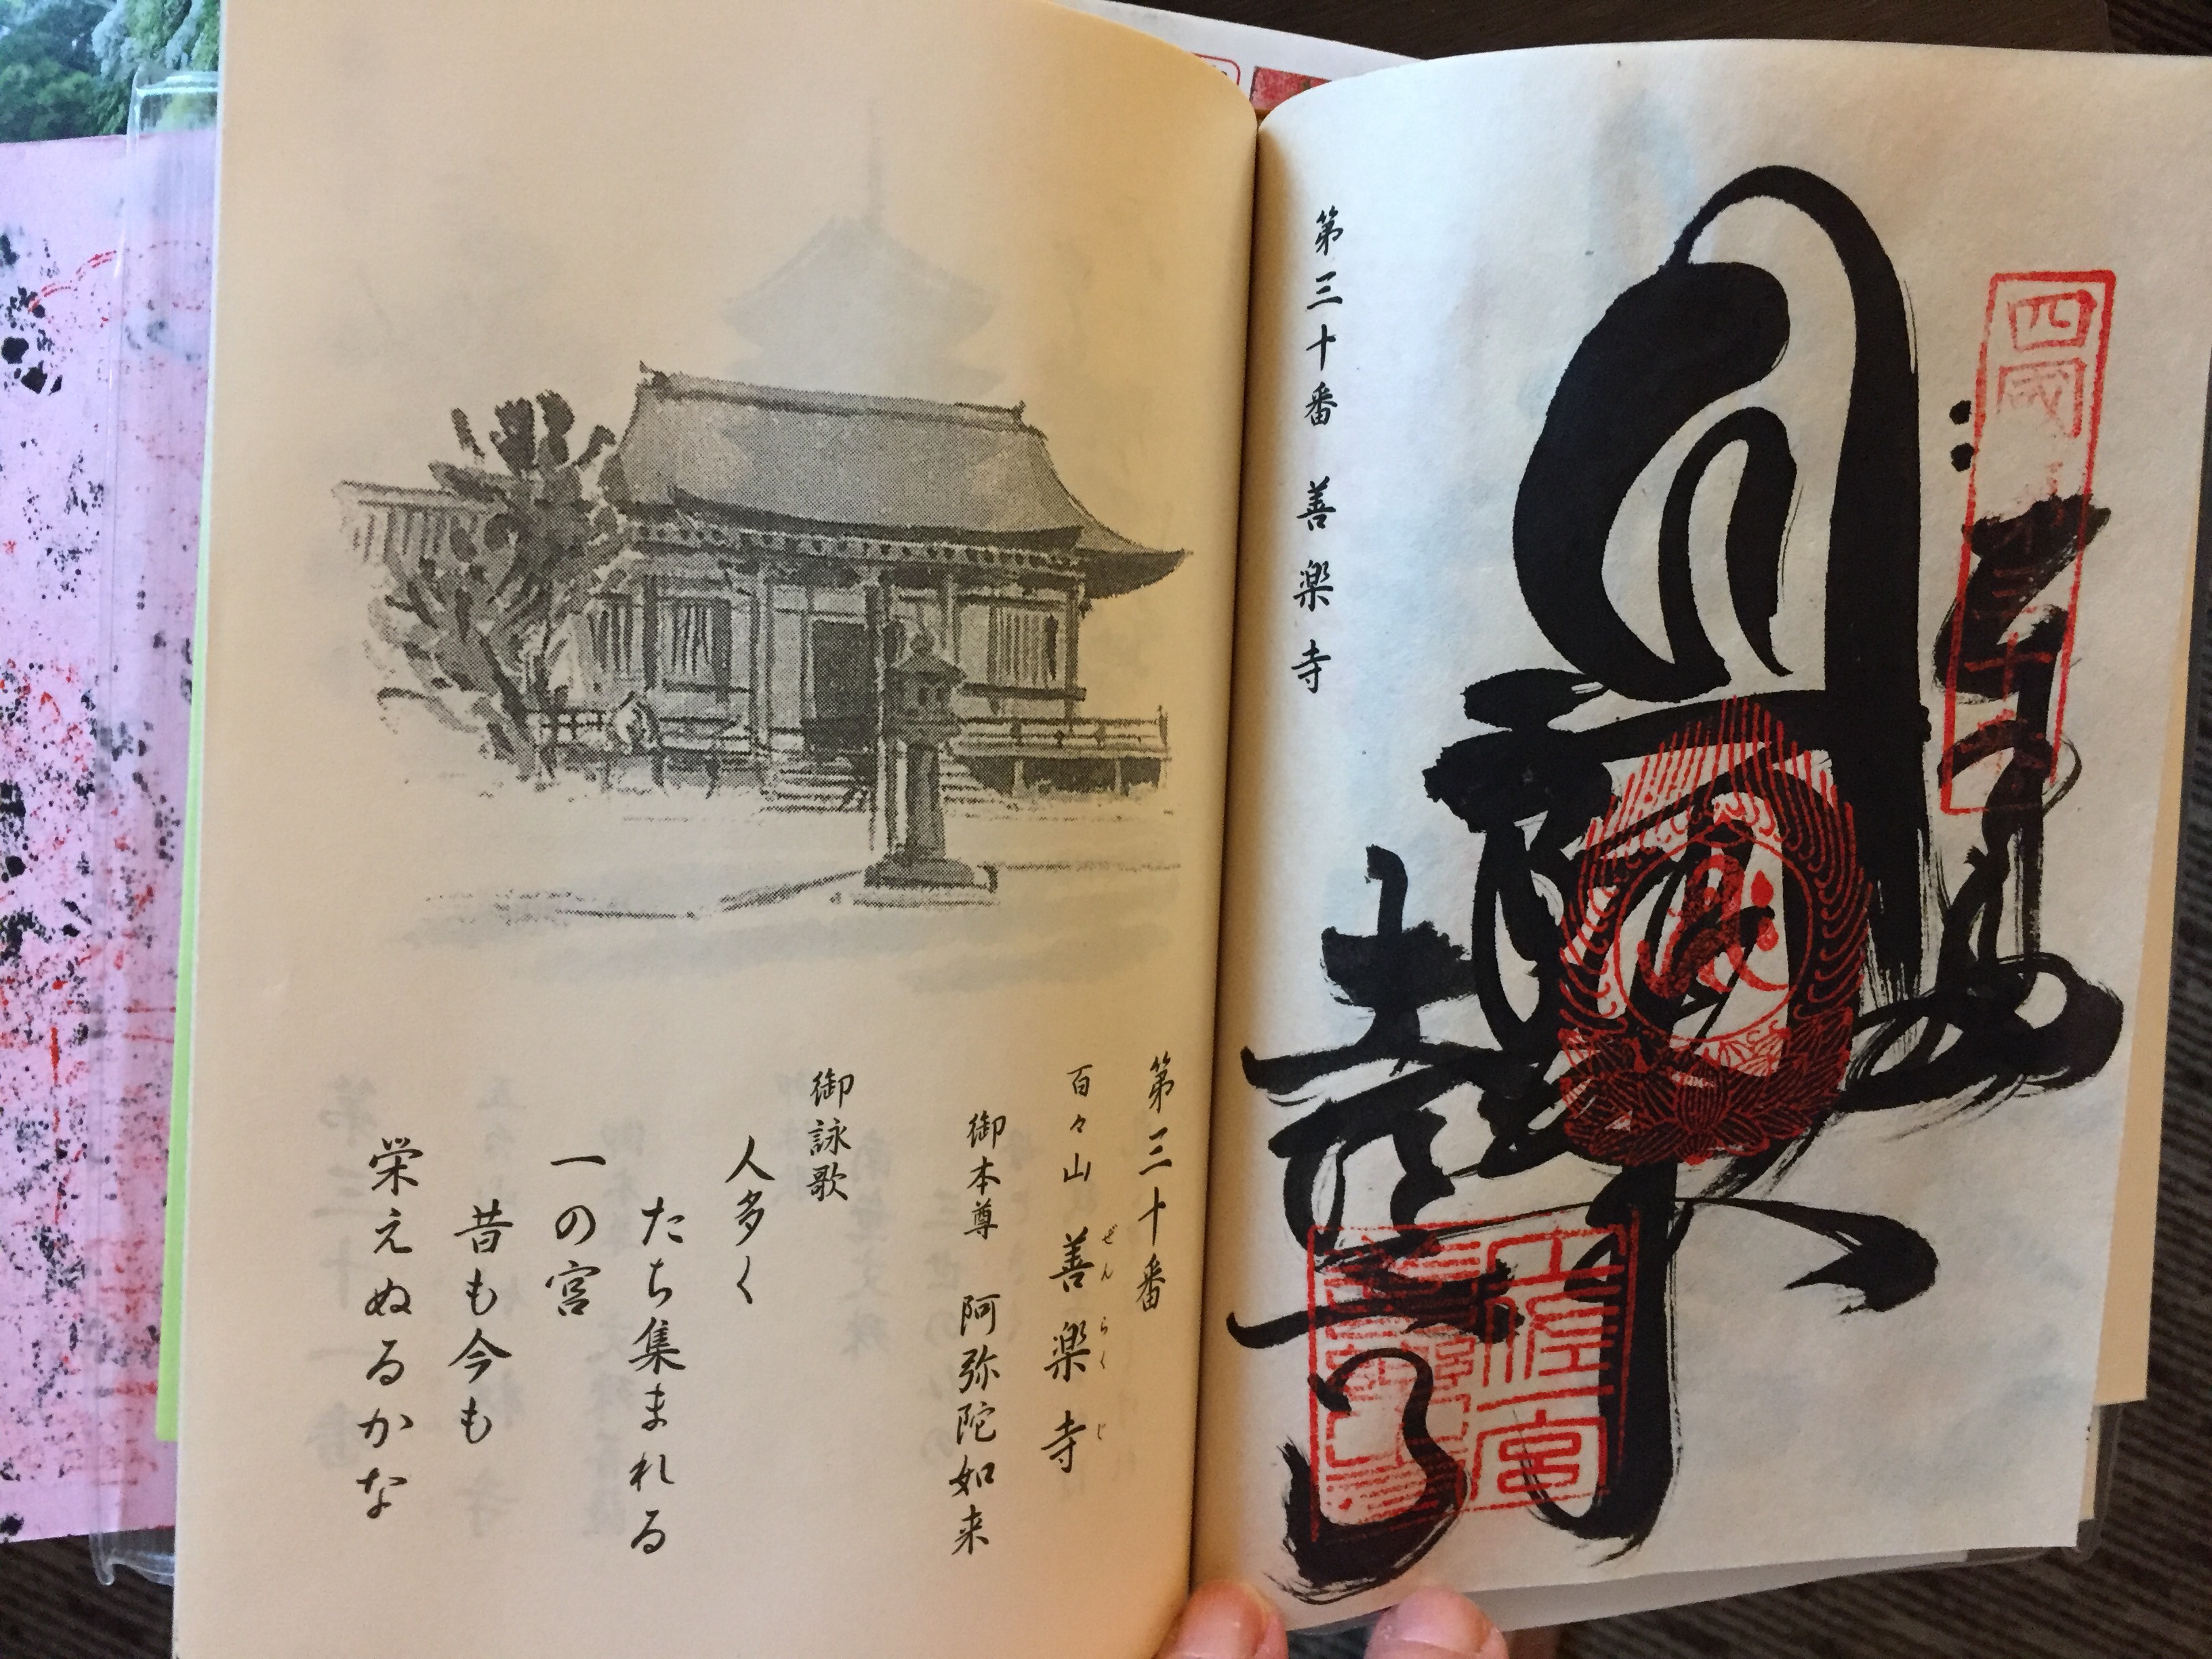 第三十番 善楽寺
四国
三十
土佐一宮
第三十番
百々山 善楽寺
ぜんらくじ
御本尊 阿弥陀如来
御詠歌
人多く
たち集まれる
一の宮
昔も今も
栄えぬるかな